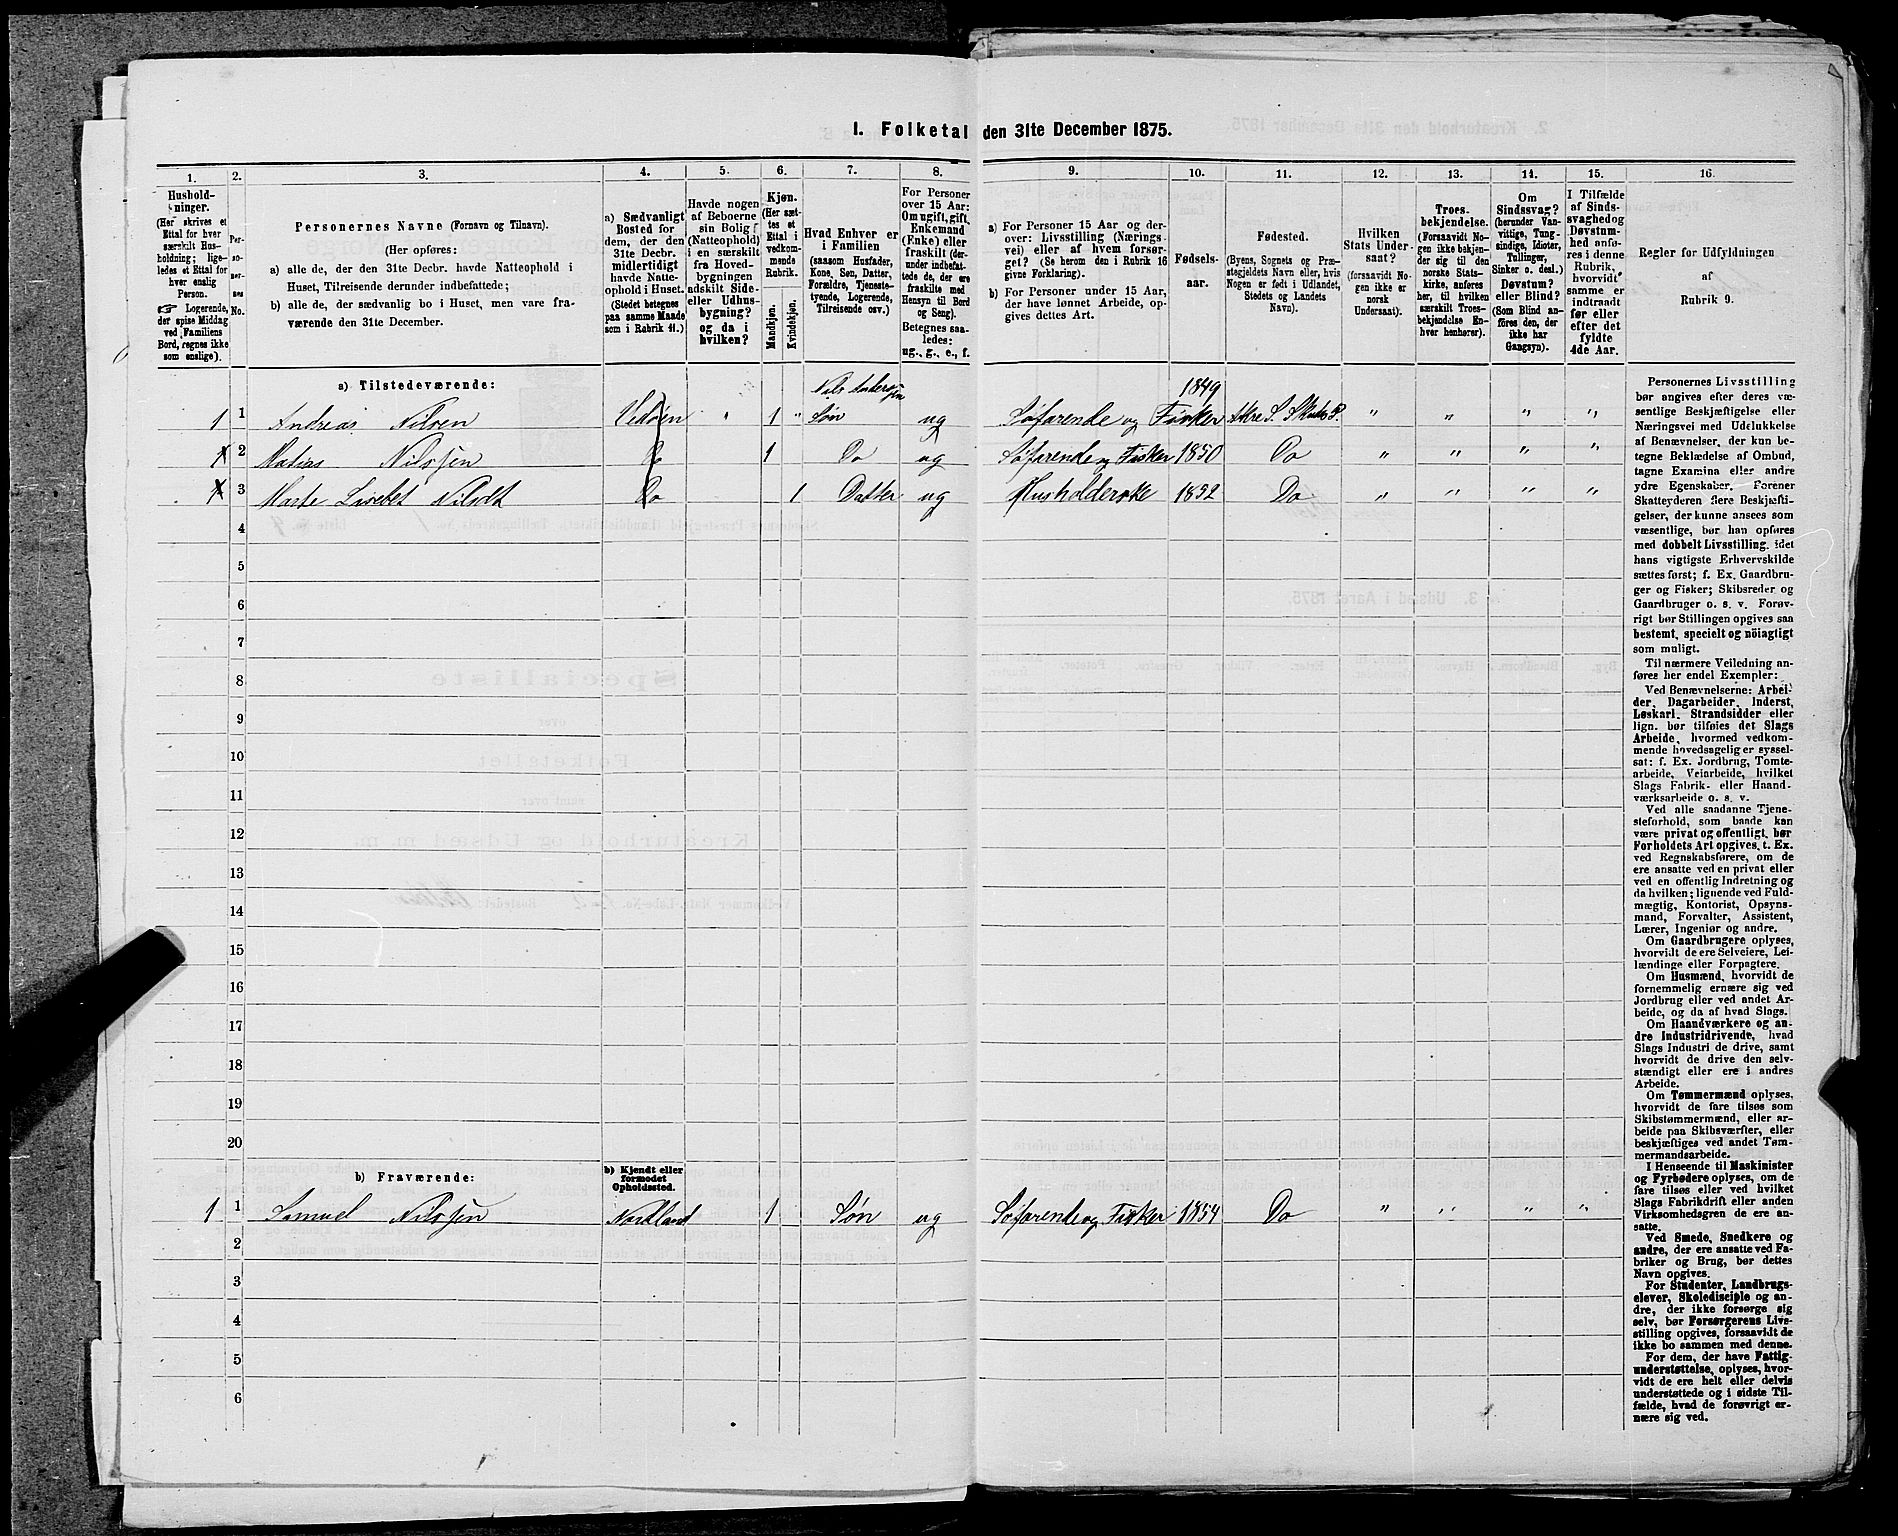 1. Folketal den 31te December 1875.
1. 2. 3. 4. 5. 6. 7. 8. 9. 10. 11. 12. 13. 14. 15. 16.
Personernes Navne (Fornavn og Tilnavn).
(Her opføres:
a) alle de, der den 31te Decbr. havde Natteophold i
Huset, Tilreisende derunder indbefattede;
b) alle de, der sædvanlig bo i Huset, men vare fra-
værende den 31te December.
a) Sædvanligt
Bosted for
dem, der den
31te Decbr.
midlertidigt
havde Natte-
ophold i Huset.
(Stedet betegnes
paa samme Maade
som i Rubrik 11.)
Havde nogen
af Beboerne
sin Bolig
(Natteophold)
i en særskilt
fra Hoved-
bygningen
adskilt Side-
eller Udhus-
bygning?
og da i
hvilken?
Kjøn.
(Her sæt-
tes et
Ettal i
vedkom-
mende
Rubrik.
Mandkjøn.
Kvindekjøn.
Hvad Enhver er
i Familien
(saasom Husfader,
Kone, Søn, Datter,
Forældre, Tjeneste-
tyende, Logerende,
Tilreisende osv.)
For Personer
over 15 Aar:
Om ugift, gift,
Enkemand
(Enke) eller
fraskilt (der-
under indbefat-
tede de, der ere
fraskilte med
Hensyn til Bord
og Seng).
Betegnes saa-
ledes:
ug., g., e., f.
a) For Personer 15 Aar og der-
over: Livsstilling (Nærings-
vei) eller af hvem forsør-
get? (Se herom den i Rubrik 16
givne Forklaring).
b) For Personer under 15 Aar,
der have lønnet Arbeide, op-
gives dettes Art.
Fødsels-
aar.
Fødested.
(Byens, Sognets og Præ-
stegjeldets Navn eller, hvis
Nogen er født i Udlandet,
Stedets og Landets
Navn).
Hvilken
Stats Under-
saat?
(forsaavidt No-
gen ikke er
norsk
Undersaat).
Troes-
bekjendelse.
(Forsaavidt No-
gen ikke bekjen-
der sig til den
norske Stats-
kirke, anføres
her, til hvilken
særskilt Troes-
bekjendelse En-
hver henhører).
Om
Sindssvag?
(herunder Van-
vittige, Tung-
sindige, Idioter,
Tullinger,
Sinker o. desl.)
Døvstum?
eller Blind?
(Som Blind an-
føres den, der
ikke har
Gangsyn).
I Tilfælde
af Sinds-
svaghed og
Døvstum-
hed anfø-
res i denne
Rubrik,
hvorvidt
samme er
indtraadt
før eller
efter det
fyldte
4de Aar.
Regler for Udfyldningen
af
Rubrik 9.
a) Tilstedeværende:
1 1 Andreas Nilsen Vedøen " 1 " Søn ug Søfarende og Fisker 1849 " " " "
2 Matias Nilssen Do 1 Do ug Søfarende og Fisker 1850 Do " " " "
3 Marte Lisebet Nilsdt Do 1 Datter ug Husholderske 1852 Do " " " "
4
5
6
7
8
9
10
11
12
13
14
15
16
17
18
19
20
b) Fraværende:
b) Kjendt eller
formodet
Opholdssted.
1 1 Samuel Nilssen Nordland 1 Søn ug Søfarende og Fisker 1854 Do " " " "
2
3
4
5
6
Personernes Livsstilling
bør angives efter deres væ-
sentlige Beskjæftigelse eller
Næringsvei med Udelukkelse
af Benævnelser, der kun be-
tegne Beklædelse af Ombud,
tagne Examina eller andre
ydre Egenskaber. Forener
Skatteyderen flere Beskjæfti-
gelser, der kunne ansees som
væsentlige, bør han opføres
med dobbelt Livsstilling, idet
hans vigtigste Erhvervskilde
sættes først; f. Ex. Gaardbru-
ger og Fisker; Skibsreder og
Gaardbruger o. s. v. Forøv-
rigt bør Stillingen opgives saa
bestemt, specielt og nöiagtigt
som muligt.
Til nærmere Veiledning an-
føres her endel Exempler:
Ved Benævnelserne: Arbei-
der, Dagarbeider, Inderst,
Løskarl, Strandsidder eller
lign. bør tilføies det Slags
Arbeide, hvormed vedkom-
mende hovedsagelig er syssel-
sat: f. Ex. Jordbrug, Tomte-
arbeide, Veiarbeide, hvilket
Slags Fabrik- eller Haand-
værksarbeide o. s. v.
Ved alle saadanne Tjene-
steforhold, som baade kan
være privat og offentligt, bør
Forholdets Art opgives, t. Ex.
ved Regnskabsførere, om de
ere ansatte ved en privat eller
ved en offentlig Indretning og
da hvilken; lignende ved Fuld-
mægtig, Kontorist, Opsyns-
mand, Forvalter, Assistent,
Lærer, Ingeniør og andre.
Om Gaardbrugere oplyses,
hvorvidt de ere Selveiere, Lei-
lændinge eller Forpagtere.
Om Husmænd, hvorvidt de
fornemmelig ernære sig ved
Jordbrug eller ved andet Ar-
beide, og da af hvad Slags.
Om Haandværkere og an-
dre Industridrivende, hvad
Slags Industri de drive, samt
hvorvidt de drive den selv-
stændigt eller ere i andres
Arbeide.
Om Tømmermænd oplyses,
hvorvidt de fare tilsøs som
Skibstømmermænd, eller ar-
beide paa Skibsværfter, eller
beskjæftiges ved andet Tøm-
mermandsarbeide.
I Henseende til Maskinister
og Fyrbødere oplyses, om de
fare tilsøs eller ved hvilket
Slags Fabrikdrift eller anden
Virksomhedsgren de ere an-
satte.
Ved Smede, Snedkere og
andre, der ere ansatte ved Fa-
briker og Brug, bør dettes
Navn opgives.
For Studenter, Landbrugs-
elever, Skoledisciple og an-
dre, der ikke forsørge sig
selv, bør Forsørgerens Livs-
stilling opgives, forsaavidt de
ikke bo sammen med denne.
For dem, der have Fattig-
understøttelse, oplyses, hvor-
vidt de ere helt eller delvis
understøttede og i sidste Til-
fælde, hvad de forøvrigt er-
nære sig ved.